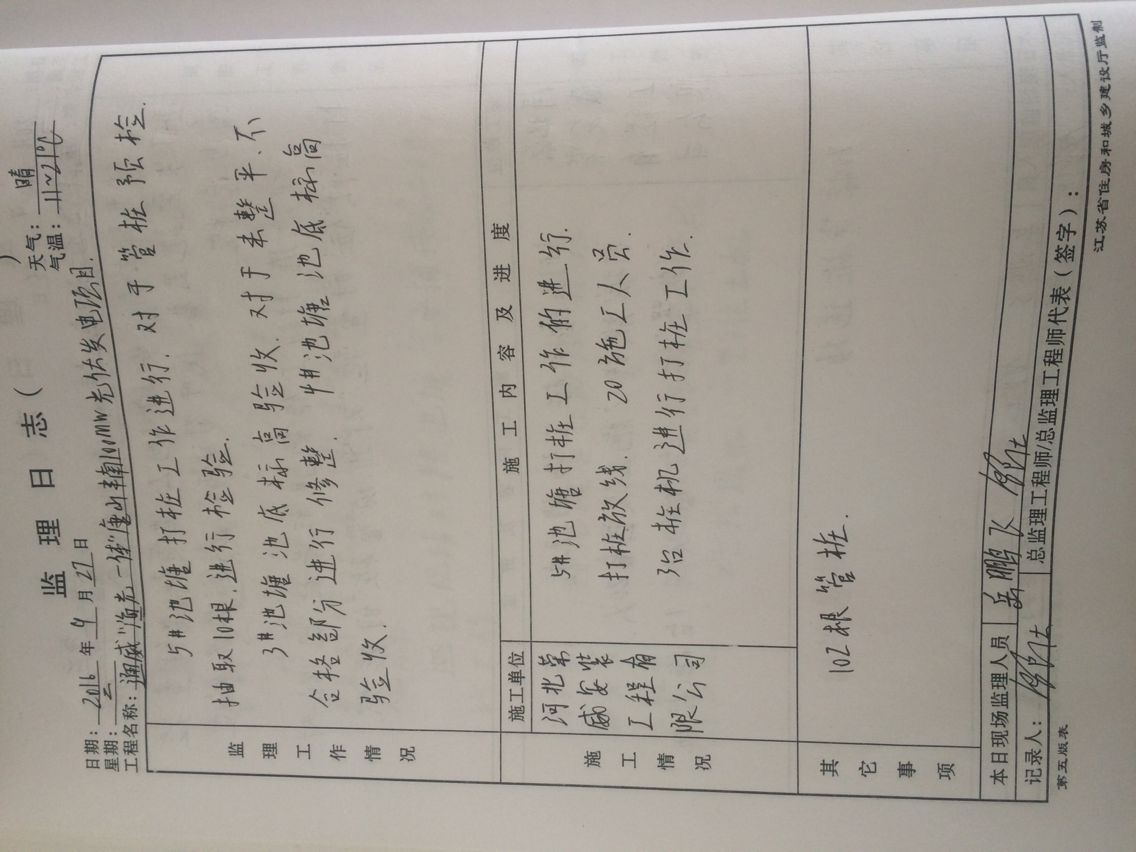 监理日志（ ）
日期：2016年9月27日 天气：晴
星期：二 气温：11~21℃
工程名称：通威"渔光一体"唐山丰南100MW光伏发电项目.
监理工作情况
5#池塘打桩工作进行. 对于管桩预检.
抽取10根,进行检验.
3#池塘池底标高验收.对于未整平、不
合格部分进行修整. 4#池塘池底标高
验收.
施工情况
施工单位 施工内容及进度
河北荣
威安装
工程有
限公司
5#池塘打桩工作的进行.
打桩放线. 20施工人员.
3台桩机进行打桩工作.
其它事项
102根管桩.
本日现场监理人员 孟鹏飞
记录人： 总监理工程师/总监理工程师代表（签字）：
第五版表 江苏省住房和城乡建设厅监制